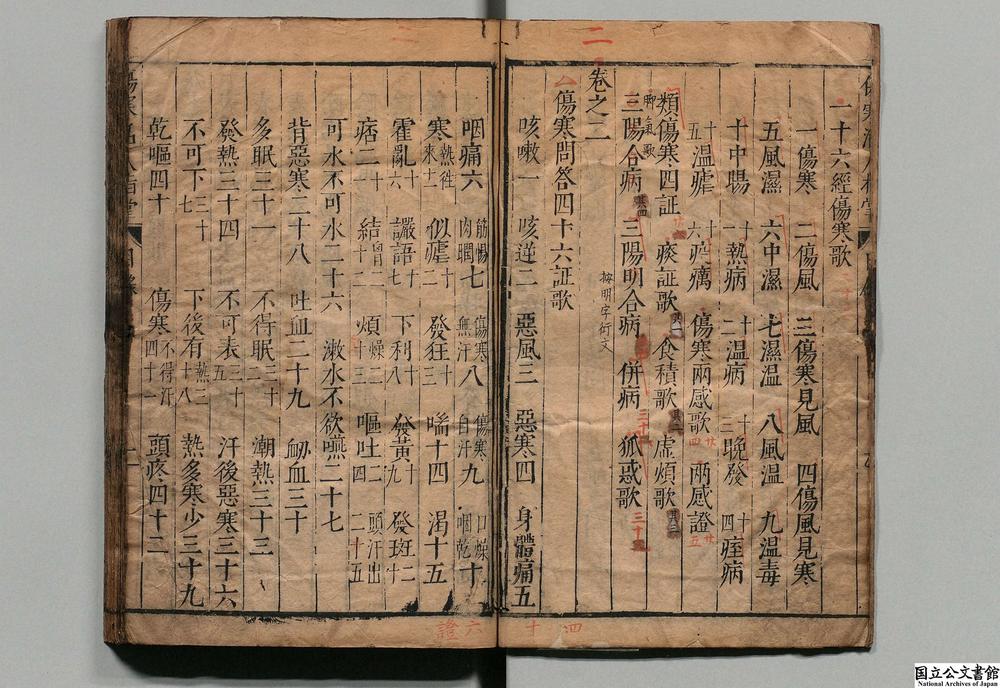 一十六經傷寒歌
一傷寒 二傷風 三傷寒見風 四傷風見寒
五風濕 六中濕 七濕温 八風温 九温毒
十中暍 十一熱病 十二温病 十三晚發 十四痓病
十五温瘧 十六疫癘 傷寒兩感歌 兩感證
類傷寒四証 痰証歌 食積歌 虚煩歌
脚氣歌
三陽合病 三陽明合病 併病 狐惑歌
按明字衍文
卷之二
傷寒問答四十六証歌
咳嗽一 咳逆二 惡風三 惡寒四 身體痛五
咽痛六 筋惕肉瞤七 傷寒無汗八 傷寒自汗九 口燥咽乾十
寒熱徃來十一 似瘧十二 發狂十三 喘十四 渴十五
霍亂十六 讝語十七 下利十八 發黄十九 發斑二十
痞二十一 結胷二十二 煩燥二十三 嘔吐二十四 頭汗出二十五
可水不可水二十六 漱水不欲嚥二十七
背惡寒二十八 吐血二十九 衂血三十
多眠三十一 不得眠三十二 潮熱三十三
發熱三十四 不可表三十五 汗後惡寒三十六
不可下三十七 下後有熱三十八 熱多寒少三十九
乾嘔四十 傷寒不得汗四十一 頭疼四十二
二
四十六證
国立公文書館
National Archives of Japan